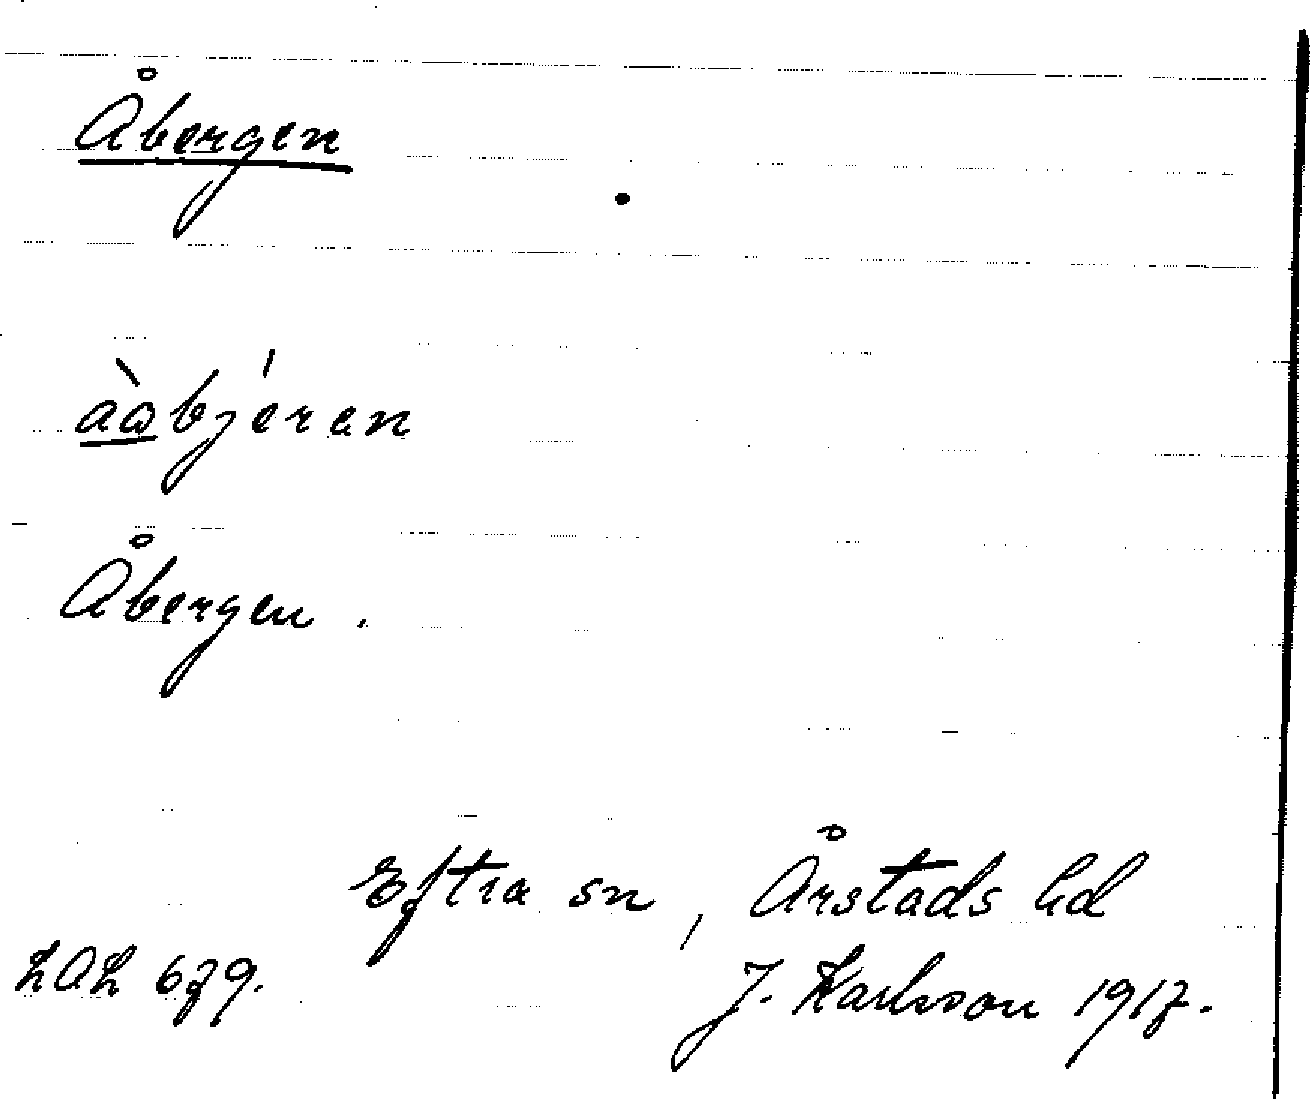 Åbergen
àabjéren
Åbergen.
Eftra sn, Årstads hd
LAL 679. J. Karlsson 1917.